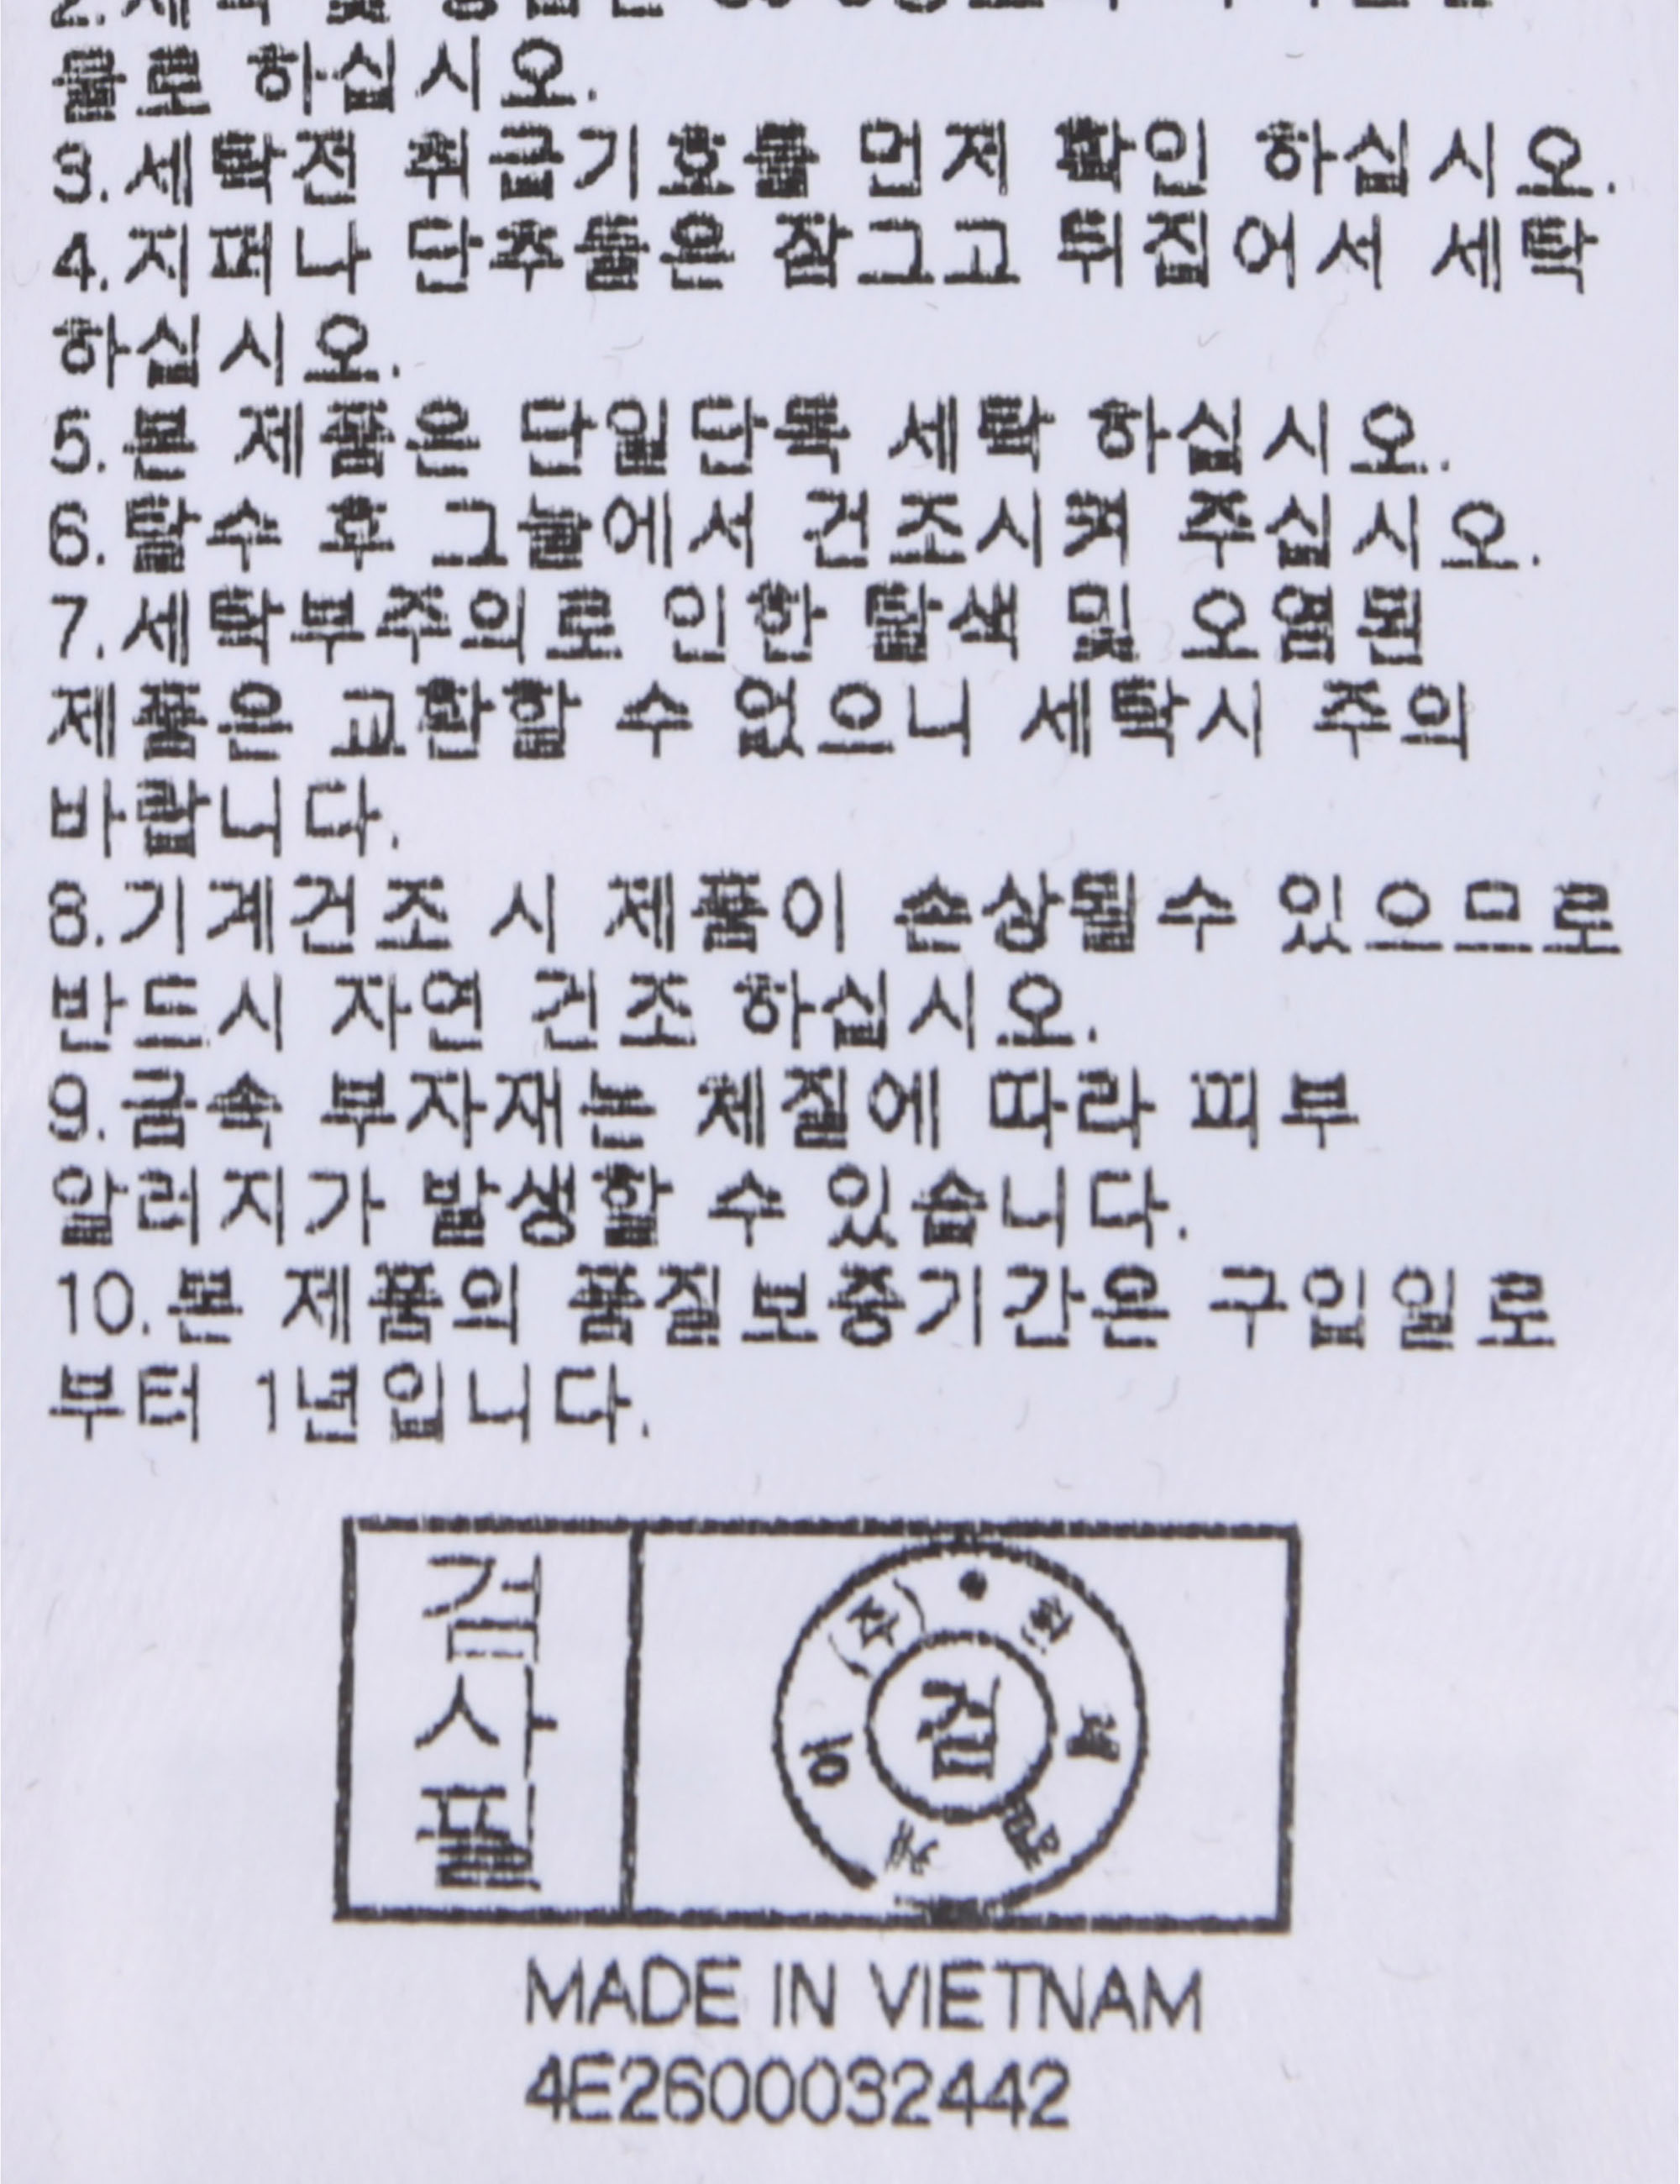 물로 하십시오.
3.세탁전 취급기호를 먼저 확인 하십시오.
4.지퍼나 단추들은 잠그고 뒤집어서 세탁
하십시오.
5.본 제품은 단일단독 세탁 하십시오.
6.탈수 후 그늘에서 건조시켜 주십시오.
7.세탁부주의로 인한 탈색 및 오염된
제품은 교환할 수 없으니 세탁시 주의
바랍니다.
8.기계건조 시 제품이 손상될수 있으므로
반드시 자연 건조 하십시오.
9.금속 부자재는 체질에 따라 피부
알러지가 발생할 수 있습니다.
10.본 제품의 품질보증기간은 구입일로
부터 1년입니다.
검사필
검
(주)
MADE IN VIETNAM
4E2600032442